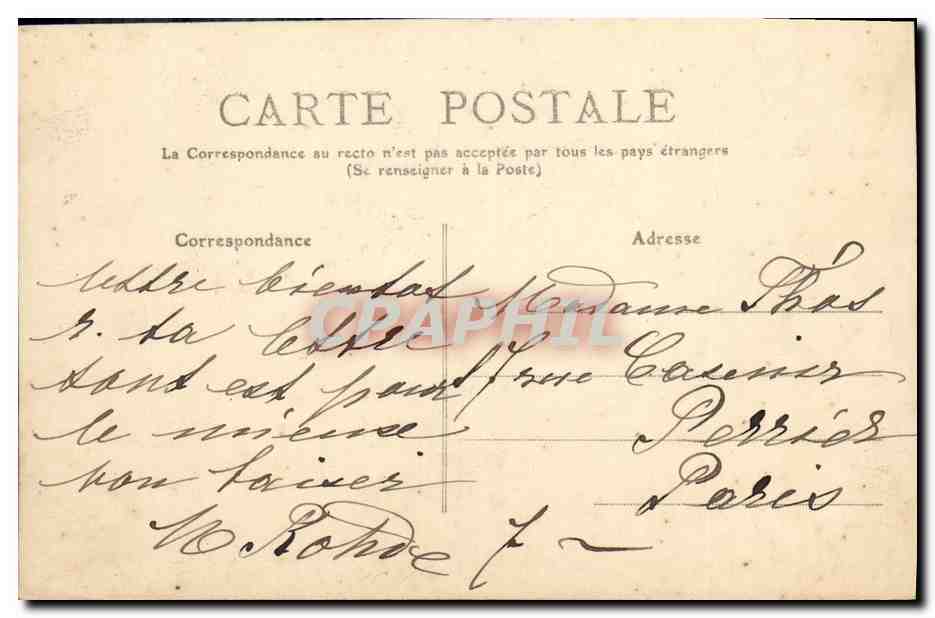 CARTE POSTALE
La Correspondance au recto n'est pas acceptée par tous les pays étrangers
(Se renseigner à la Poste)
Correspondance
lettre bientot
r. ta lettre
tout est pour
le mieux
bon baiser
M Rohde
Adresse
Madame Thos
7 rue Casimir
Perrier
Paris
7 ~
CPAPHIL